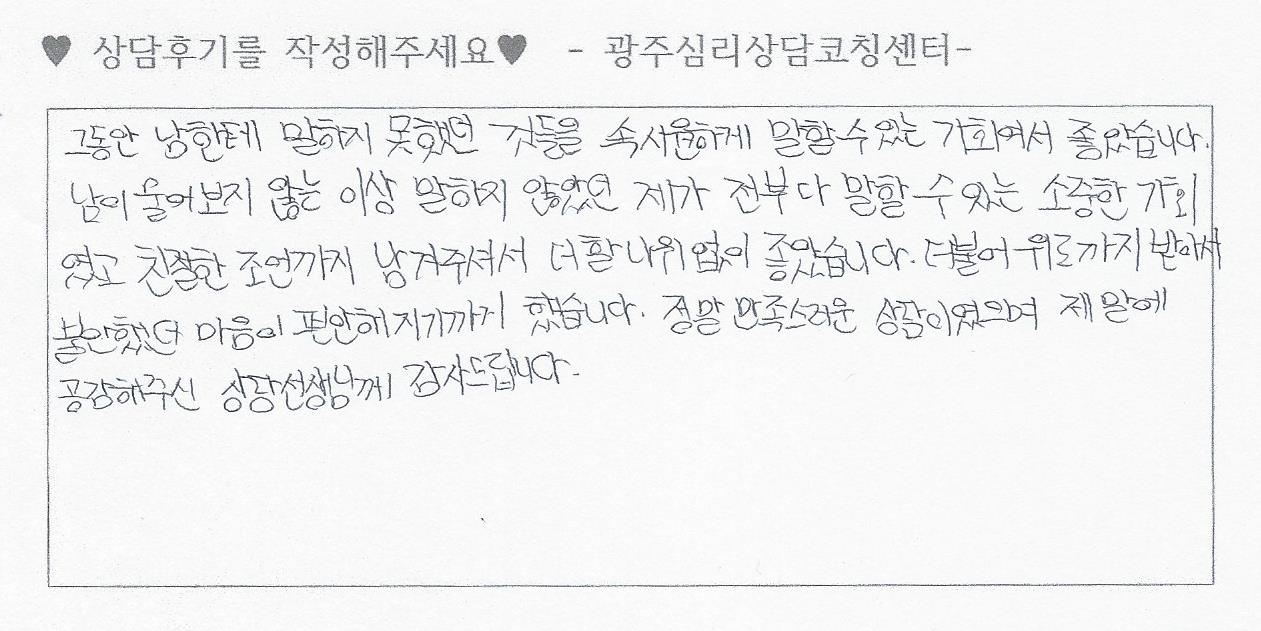 ♥ 상담후기를 작성해주세요♥ - 광주심리상담코칭센터-
그동안 남한테 말하지 못했던 것들을 속시원하게 말할 수 있는 기회여서 좋았습니다.
남이 물어보지 않는 이상 말하지 않았던 제가 전부 다 말할 수 있는 소중한 기회
였고 친절한 조언까지 남겨주셔서 더할 나위 없이 좋았습니다. 더불어 위로까지 받아서
불안했던 마음이 편안해지기까지 했습니다. 정말 만족스러운 상담이였으며 제 말에
공감해주신 상담선생님께 감사드립니다.